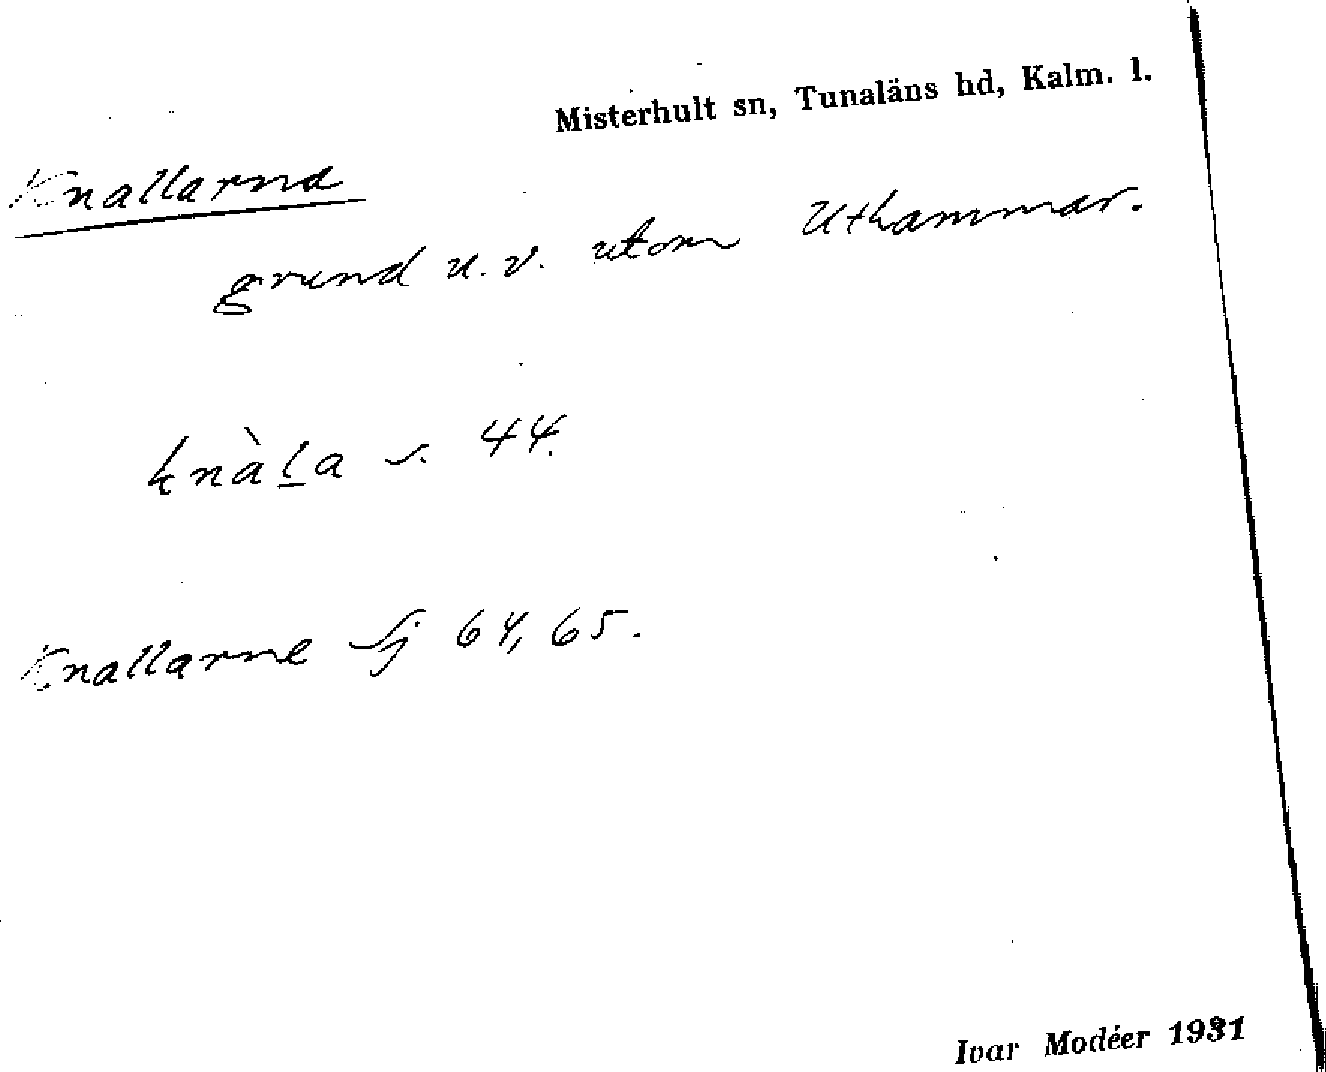 Misterhult sn, Tunaläns hd, Kalm. l.
Knallarna
grund u.v. utom Uthammar.
knàḻa s. 44.
Knallarne Sj 64, 65.
Ivar Modéer 1931